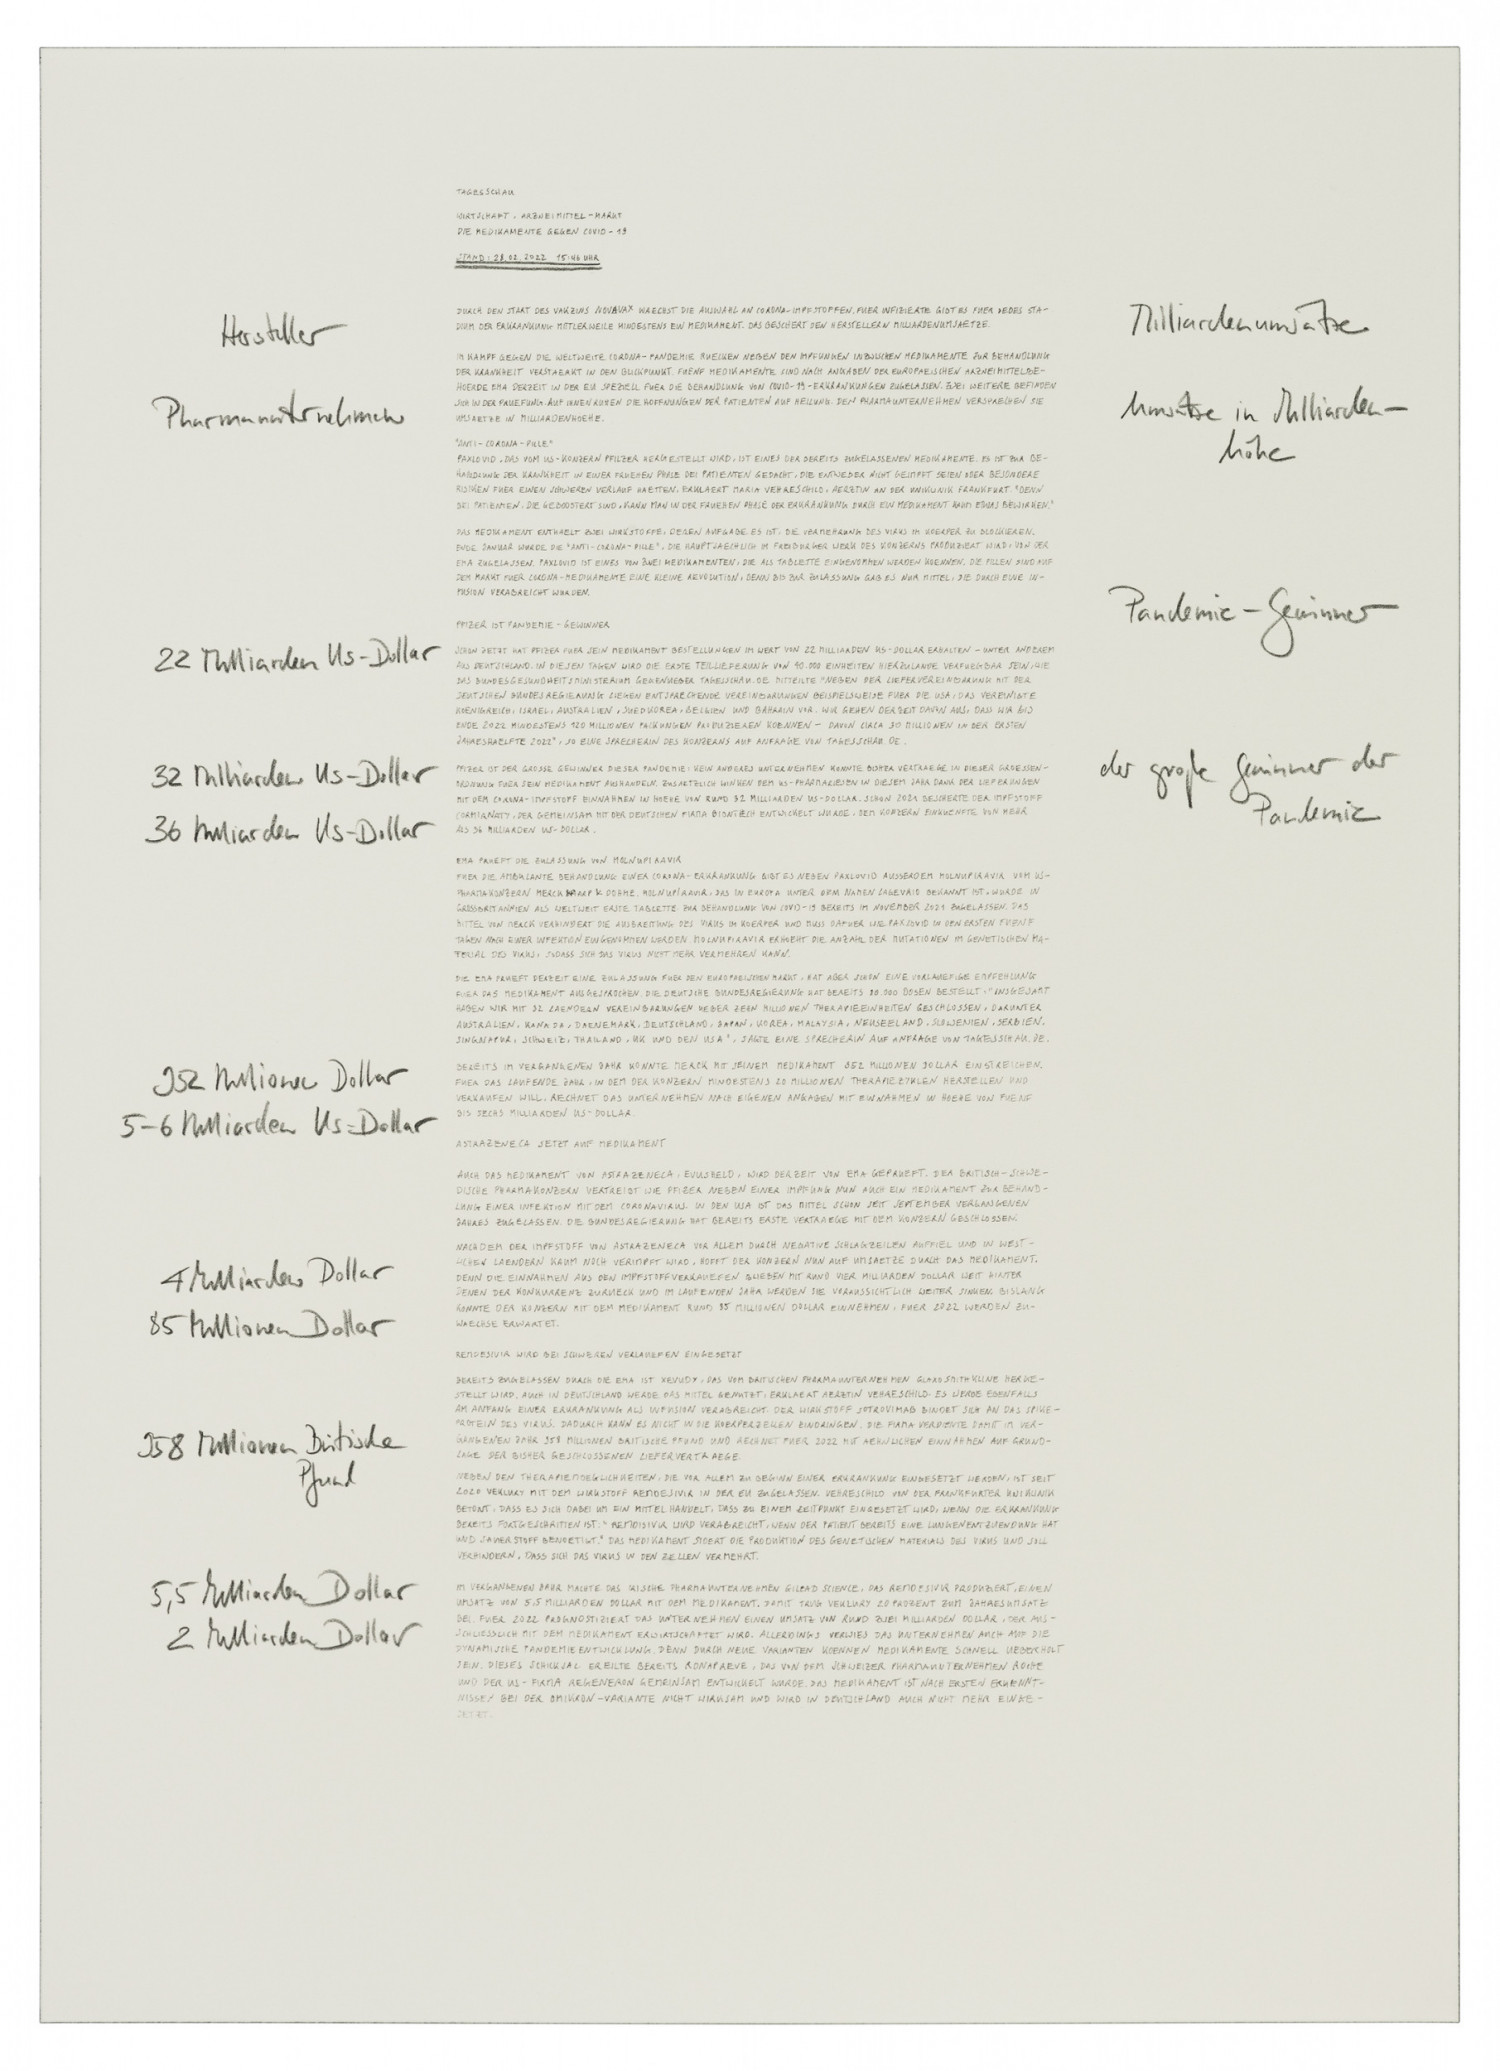 TAGESSCHAU
WIRTSCHAFT. ARZNEIMITTEL-MARKT
DIE MEDIKAMENTE GEGEN COVID-19
STAND: 28.02.2022 15:46 UHR
Hersteller
Pharmaunternehmen
22 Milliarden US-Dollar
32 Milliarden US-Dollar
36 Milliarden US-Dollar
952 Millionen Dollar
5-6 Milliarden US-Dollar
4 Milliarden Dollar
85 Millionen Dollar
958 Millionen Britische
Pfund
5,5 Milliarden Dollar
2 Milliarden Dollar
DURCH DEN START DES VAKZINS NOVAVAX WAECHST DIE AUSWAHL AN CORONA-IMPFSTOFFEN. FUER INFIZIERTE GIBT ES FUER JEDES STA-
DIUM DER ERKRANKUNG MITLERWEILE MINDESTENS EIN MEDIKAMENT. DAS BESCHERT DEN HERSTELLERN MILLIARDENUMSAETZE.
IM KAMPF GEGEN DIE WELTWEITE CORONA-PANDEMIE RUECKEN NEBEN DEN IMPFUNGEN INZWISCHEN MEDIKAMENTE ZUR BEHANDLUNG
DER KRANKHEIT VERSTAERKT IN DEN BLICKPUNKT. FUENF MEDIKAMENTE SIND NACH ANGABEN DER EUROPAEISCHEN ARZNEIMITTELBE-
HOERDE EMA DERZEIT IN DER EU SPEZIELL FUER DIE BEHANDLUNG VON COVID-19-ERKRANKUNGEN ZUGELASSEN. ZWEI WEITERE BEFINDEN
SICH IN DER PRUEFUNG. AUF IHNEN RUHEN DIE HOFFNUNGEN DER PATIENTEN AUF HEILUNG. DEN PHARMAUNTERNEHMEN VERSPRECHEN SIE
UMSAETZE IN MILLIARDENHOEHE.
"ANTI-CORONA-PILLE"
PAXLOVID, DAS VOM US-KONZERN PFIZER HERGESTELLT WIRD, IST EINES DER BEREITS ZUGELASSENEN MEDIKAMENTE. ES IST ZUR BE-
HANDLUNG DER KRANKHEIT IN EINER FRUEHEN PHASE BEI PATIENTEN GEDACHT, DIE ENTWEDER NICHT GEIMPFT SEIEN ODER BESONDERE
RISIKEN FUER EINEN SCHWEREN VERLAUF HAETTEN, ERKLAERT MARIA VEHRESCHILD, AERZTIN AN DER UNIKLINIK FRANKFURT. "DENN
BEI PATIENTEN, DIE GEBOOSTERT SIND, KANN MAN IN DER FRUEHEN PHASE DER ERKRANKUNG DURCH EIN MEDIKAMENT KAUM ETWAS BEWIRKEN."
DAS MEDIKAMENT ENTHAELT ZWEI WIRKSTOFFE, DEREN AUFGABE ES IST, DIE VERMEHRUNG DES VIRUS IM KOERPER ZU BLOCKIEREN.
ENDE JANUAR WURDE DIE "ANTI-CORONA-PILLE", DIE HAUPTSAECHLICH IM FREIBURGER WERK DES KONZERNS PRODUZIERT WIRD, VON DER
EMA ZUGELASSEN. PAXLOVID IST EINES VON ZWEI MEDIKAMENTEN, DIE ALS TABLETTE EINGENOMMEN WERDEN KOENNEN. DIE PILLEN SIND AUF
DEM MARKT FUER CORONA-MEDIKAMENTE EINE KLEINE REVOLUTION, DENN BIS ZUR ZULASSUNG GAB ES NUR MITTEL, DIE DURCH EINE IN-
FUSION VERABREICHT WURDEN.
PFIZER IST PANDEMIE-GEWINNER
SCHON JETZT HAT PFIZER FUER SEIN MEDIKAMENT BESTELLUNGEN IM WERT VON 22 MILLIARDEN US-DOLLAR ERHALTEN - UNTER ANDEREM
AUS DEUTSCHLAND. IN DIESEN TAGEN WIRD DIE ERSTE TEILLIEFERUNG VON 40.000 EINHEITEN HIERZULANDE VERFUEGBAR SEIN, WIE
DAS BUNDESGESUNDHEITSMINISTERIUM GEGENUEBER TAGESSCHAU.DE MITTEILTE "NEBEN DER LIEFERVEREINBARUNG MIT DER
DEUTSCHEN BUNDESREGIERUNG LIEGEN ENTSPRECHENDE VEREINBARUNGEN BEISPIELSWEISE FUER DIE USA, DAS VEREINIGTE
KOENIGREICH, ISRAEL, AUSTRALIEN, SUEDKOREA, BELGIEN UND BAHRAIN VOR. WIR GEHEN DERZEIT DAVON AUS, DASS WIR BIS
ENDE 2022 MINDESTENS 120 MILLIONEN PACKUNGEN PRODUZIEREN KOENNEN - DAVON CIRCA 30 MILLIONEN IN DER ERSTEN
JAHRESHAELFTE 2022", SO EINE SPRECHERIN DES KONZERNS AUF ANFRAGE VON TAGESSCHAU.DE.
PFIZER IST DER GROSSE GEWINNER DIESER PANDEMIE: KEIN ANDERES UNTERNEHMEN KONNTE BISHER VERTRAEGE IN DIESER GROESSEN-
ORDNUNG FUER SEIN MEDIKAMENT AUSHANDELN. ZUSAETZLICH WINKEN DEM US-PHARMARIESEN IN DIESEM JAHR DANK DER LIEFERUNGEN
MIT DEM CORONA-IMPFSTOFF EINNAHMEN IN HOEHE VON RUND 32 MILLIARDEN US-DOLLAR. SCHON 2021 BESCHERTE DER IMPFSTOFF
COMIRNATY, DER GEMEINSAM MIT DER DEUTSCHEN FIRMA BIONTECH ENTWICKELT WURDE, DEM KONZERN EINKUENFTE VON MEHR
ALS 36 MILLIARDEN US-DOLLAR.
EMA PRUEFT DIE ZULASSUNG VON MOLNUPIRAVIR
FUER DIE AMBULANTE BEHANDLUNG EINER CORONA-ERKRANKUNG GIBT ES NEBEN PAXLOVID AUSSERDEM MOLNUPIRAVIR VOM US-
PHARMAKONZERN MERCK SHARP & DOHME. MOLNUPIRAVIR, DAS IN EUROPA UNTER DEM NAMEN LAGEVRIO BEKANNT IST, WURDE IN
GROSSBRITANNIEN ALS WELTWEIT ERSTE TABLETTE ZUR BEHANDLUNG VON COVID-19 BEREITS IM NOVEMBER 2021 ZUGELASSEN. DAS
MITTEL VON MERCK VERHINDERT DIE AUSBREITUNG DES VIRUS IM KOERPER UND MUSS DAFUER WIE PAXLOVID IN DEN ERSTEN FUENF
TAGEN NACH EINER INFEKTION EINGENOMMEN WERDEN. MOLNUPIRAVIR ERHOEHT DIE ANZAHL DER MUTATIONEN IM GENETISCHEN MA-
TERIAL DES VIRUS, SODASS SICH DAS VIRUS NICHT MEHR VERMEHREN KANN.
DIE EMA PRUEFT DERZEIT EINE ZULASSUNG FUER DEN EUROPAEISCHEN MARKT, HAT ABER SCHON EINE VORLAEUFIGE EMPFEHLUNG
FUER DAS MEDIKAMENT AUSGESPROCHEN. DIE DEUTSCHE BUNDESREGIERUNG HAT BEREITS 80.000 DOSEN BESTELLT. "INSGESAMT
HABEN WIR MIT 32 LAENDERN VEREINBARUNGEN UEBER ZEHN MILLIONEN THERAPIEEINHEITEN GESCHLOSSEN, DARUNTER
AUSTRALIEN, KANADA, DAENEMARK, DEUTSCHLAND, JAPAN, KOREA, MALAYSIA, NEUSEELAND, SLOWENIEN, SERBIEN,
SINGAPUR, SCHWEIZ, THAILAND, UK UND DEN USA", SAGTE EINE SPRECHERIN AUF ANFRAGE VON TAGESSCHAU.DE.
BEREITS IM VERGANGENEN JAHR KONNTE MERCK MIT SEINEM MEDIKAMENT 952 MILLIONEN DOLLAR EINSTREICHEN.
FUER DAS LAUFENDE JAHR, IN DEM DER KONZERN MINDESTENS 20 MILLIONEN THERAPIEZYKLEN HERSTELLEN UND
VERKAUFEN WILL, RECHNET DAS UNTERNEHMEN NACH EIGENEN ANGABEN MIT EINNAHMEN IN HOEHE VON FUENF
BIS SECHS MILLIARDEN US-DOLLAR.
ASTRAZENECA SETZT AUF MEDIKAMENT
AUCH DAS MEDIKAMENT VON ASTRAZENECA, EVUSHELD, WIRD DERZEIT VON EMA GEPRUEFT. DER BRITISCH-SCHWE-
DISCHE PHARMAKONZERN VERTREIBT WIE PFIZER NEBEN EINER IMPFUNG NUN AUCH EIN MEDIKAMENT ZUR BEHAND-
LUNG EINER INFEKTION MIT DEM CORONAVIRUS. IN DEN USA IST DAS MITTEL SCHON SEIT SEPTEMBER VERGANGENEN
JAHRES ZUGELASSEN. DIE BUNDESREGIERUNG HAT BEREITS ERSTE VERTRAEGE MIT DEM KONZERN GESCHLOSSEN.
NACHDEM DER IMPFSTOFF VON ASTRAZENECA VOR ALLEM DURCH NEGATIVE SCHLAGZEILEN AUFFIEL UND IN WEST-
LICHEN LAENDERN KAUM NOCH VERIMPFT WIRD, HOFFT DER KONZERN NUN AUF UMSAETZE DURCH DAS MEDIKAMENT.
DENN DIE EINNAHMEN AUS DEN IMPFSTOFFVERKAEUFEN BLIEBEN MIT RUND VIER MILLIARDEN DOLLAR WEIT HINTER
DENEN DER KONKURRENZ ZURUECK UND IM LAUFENDEN JAHR WERDEN SIE VORAUSSICHTLICH WEITER SINKEN. BISLANG
KONNTE DER KONZERN MIT DEM MEDIKAMENT RUND 85 MILLIONEN DOLLAR EINNEHMEN, FUER 2022 WERDEN ZU-
WAECHSE ERWARTET.
REMDESIVIR WIRD BEI SCHWEREN VERLAEUFEN EINGESETZT
BEREITS ZUGELASSEN DURCH DIE EMA IST XEVUDY, DAS VOM BRITISCHEN PHARMAUNTERNEHMEN GLAXOSMITHKLINE HERGE-
STELLT WIRD. AUCH IN DEUTSCHLAND WERDE DAS MITTEL GENUTZT, ERKLAERT AERZTIN VEHRESCHILD. ES WERDE EBENFALLS
AM ANFANG EINER ERKRANKUNG ALS INFUSION VERABREICHT. DER WIRKSTOFF SOTROVIMAB BINDET SICH AN DAS SPIKE-
PROTEIN DES VIRUS. DADURCH KANN ES NICHT IN DIE KOERPERZELLEN EINDRINGEN. DIE FIRMA VERDIENTE DAMIT IM VER-
GANGENEN JAHR 958 MILLIONEN BRITISCHE PFUND UND RECHNET FUER 2022 MIT AEHNLICHEN EINNAHMEN AUF GRUND-
LAGE DER BISHER GESCHLOSSENEN LIEFERVERTRAEGE.
NEBEN DEN THERAPIEMOEGLICHKEITEN, DIE VOR ALLEM ZU BEGINN EINER ERKRANKUNG EINGESETZT WERDEN, IST SEIT
2020 VEKLURY MIT DEM WIRKSTOFF REMDESIVIR IN DER EU ZUGELASSEN. VEHRESCHILD VON DER FRANKFURTER UNIKLINIK
BETONT, DASS ES SICH DABEI UM EIN MITTEL HANDELT, DASS ZU EINEM ZEITPUNKT EINGESETZT WIRD, WENN DIE ERKRANKUNG
BEREITS FORTGESCHRITTEN IST: "REMDISIVIR WIRD VERABREICHT, WENN DER PATIENT BEREITS EINE LUNGENENTZUENDUNG HAT
UND SAUERSTOFF BENOETIGT." DAS MEDIKAMENT STOERT DIE PRODUKTION DES GENETISCHEN MATERIALS DES VIRUS UND SOLL
VERHINDERN, DASS SICH DAS VIRUS IN DEN ZELLEN VERMEHRT.
IM VERGANGENEN JAHR MACHTE DAS PHARMAUNTERNEHMEN GILEAD SCIENCE, DAS REMDESIVIR PRODUZIERT, EINEN
UMSATZ VON 5,5 MILLIARDEN DOLLAR MIT DEM MEDIKAMENT. DAMIT TRUG VEKLURY 20 PROZENT ZUM JAHRESUMSATZ
BEI. FUER 2022 PROGNOSTIZIERT DAS UNTERNEHMEN EINEN UMSATZ VON RUND ZWEI MILLIARDEN DOLLAR, DER AUS-
SCHLIESSLICH MIT DEM MEDIKAMENT ERWIRTSCHAFTET WIRD. ALLERDINGS VERWIES DAS UNTERNEHMEN AUCH AUF DIE
DYNAMISCHE PANDEMIEENTWICKLUNG. DENN DURCH NEUE VARIANTEN KOENNEN MEDIKAMENTE SCHNELL UEBERHOLT
SEIN. DIESES SCHICKSAL EREILTE BEREITS RONAPREVE, DAS VON DEM SCHWEIZER PHARMAUNTERNEHMEN ROCHE
UND DER US-FIRMA REGENERON GEMEINSAM ENTWICKELT WURDE. DAS MEDIKAMENT IST NACH ERSTEN ERKENNT-
NISSEN BEI DER OMIKRON-VARIANTE NICHT WIRKSAM UND WIRD IN DEUTSCHLAND AUCH NICHT MEHR EINGE-
SETZT.
Milliardenumsätze
Umsätze in Milliarden-
höhe
Pandemie-Gewinner
der große Gewinner der
Pandemie